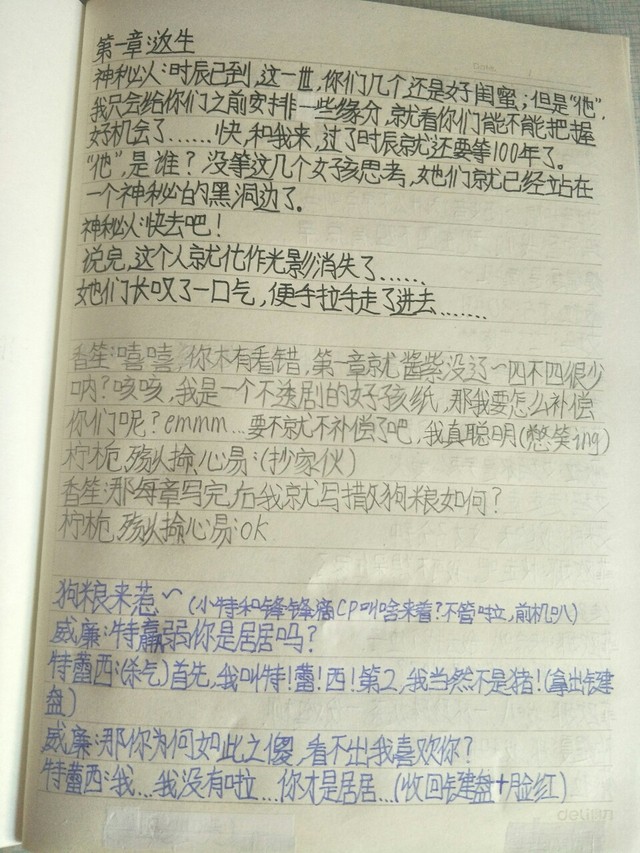 第一章:逆生
神秘人:时辰已到,这一世,你们几个还是好闺蜜;但是“他”,
我只会给你们之前安排一些缘分,就看你们能不能把握
好机会了……快,和我来,过了时辰就还要等100年了。
“他”,是谁?没等这几个女孩思考,她们就已经站在
一个神秘的黑洞边了。
神秘人:快去吧!
说完,这个人就化作光影消失了……
她们长叹了一口气,便手拉手走了进去……
香笙:嘻嘻,你木有看错,第一章就酱紫没辽~四不四很少
呐?咳咳,我是一个不透剧的好孩纸,那我要怎么补偿
你们呢?emmm…要不就不补偿了吧,我真聪明(憋笑ing)
柠栀,殇,揄,易:(抄家伙)
香笙:那每章写完后我就写撒狗粮如何?
柠栀,殇,揄,易:OK
狗粮来惹~(小特和锋锋滴CP叫啥来着?不管啦,前机叭)
威廉:特蘼弱你是居居吗?
特蕾西:(杀气)首先,我叫特!蕾!西!第2,我当然不是猪!(拿出键
盘)
威廉:那你为何如此之傻,看不出我喜欢你?
特蕾西:我…我没有啦…你才是居居…(收回键盘+脸红)
deli